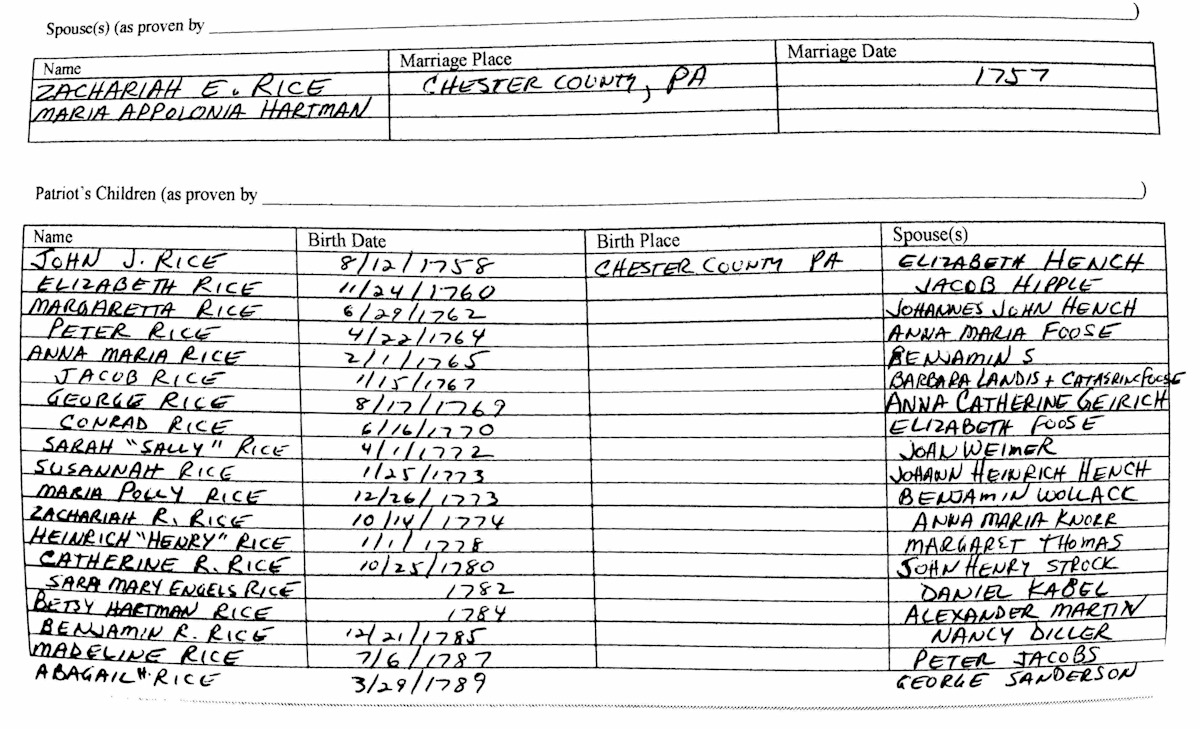 Spouse(s) (as proven by )
Name Marriage Place Marriage Date
ZACHARIAH E. RICE CHESTER COUNTY, PA 1757
MARIA APPOLONIA HARTMAN
Patriot's Children (as proven by )
Name Birth Date Birth Place Spouse(s)
JOHN J. RICE 8/12/1758 CHESTER COUNTY PA ELIZABETH HENCH
ELIZABETH RICE 11/24/1760 JACOB HIPPLE
MARGARETTA RICE 6/29/1762 JOHANNES JOHN HENCH
PETER RICE 4/22/1764 ANNA MARIA FOOSE
ANNA MARIA RICE 2/1/1765 BENJAMIN S
JACOB RICE 1/15/1767 BARBARA LANDIS + CATASRINE FOOSE
GEORGE RICE 8/17/1769 ANNA CATHERINE GEIRICH
CONRAD RICE 6/16/1770 ELIZABETH FOOSE
SARAH "SALLY" RICE 4/1/1772 JOAN WEIMER
SUSANNAH RICE 1/25/1773 JOHANN HEINRICH HENCH
MARIA POLLY RICE 12/26/1773 BENJAMIN WOLLACK
ZACHARIAH R. RICE 10/14/1774 ANNA MARIA KNORR
HEINRICH "HENRY" RICE 1/1/1778 MARGARET THOMAS
CATHERINE R. RICE 10/25/1780 JOHN HENRY STROCK
SARA MARY ENGELS RICE 1782 DANIEL KABEL
BETSY HARTMAN RICE 1784 ALEXANDER MARTIN
BENJAMIN R. RICE 12/21/1785 NANCY DILLER
MADELINE RICE 7/6/1787 PETER JACOBS
ABAGAIL H. RICE 3/29/1789 GEORGE SANDERSON